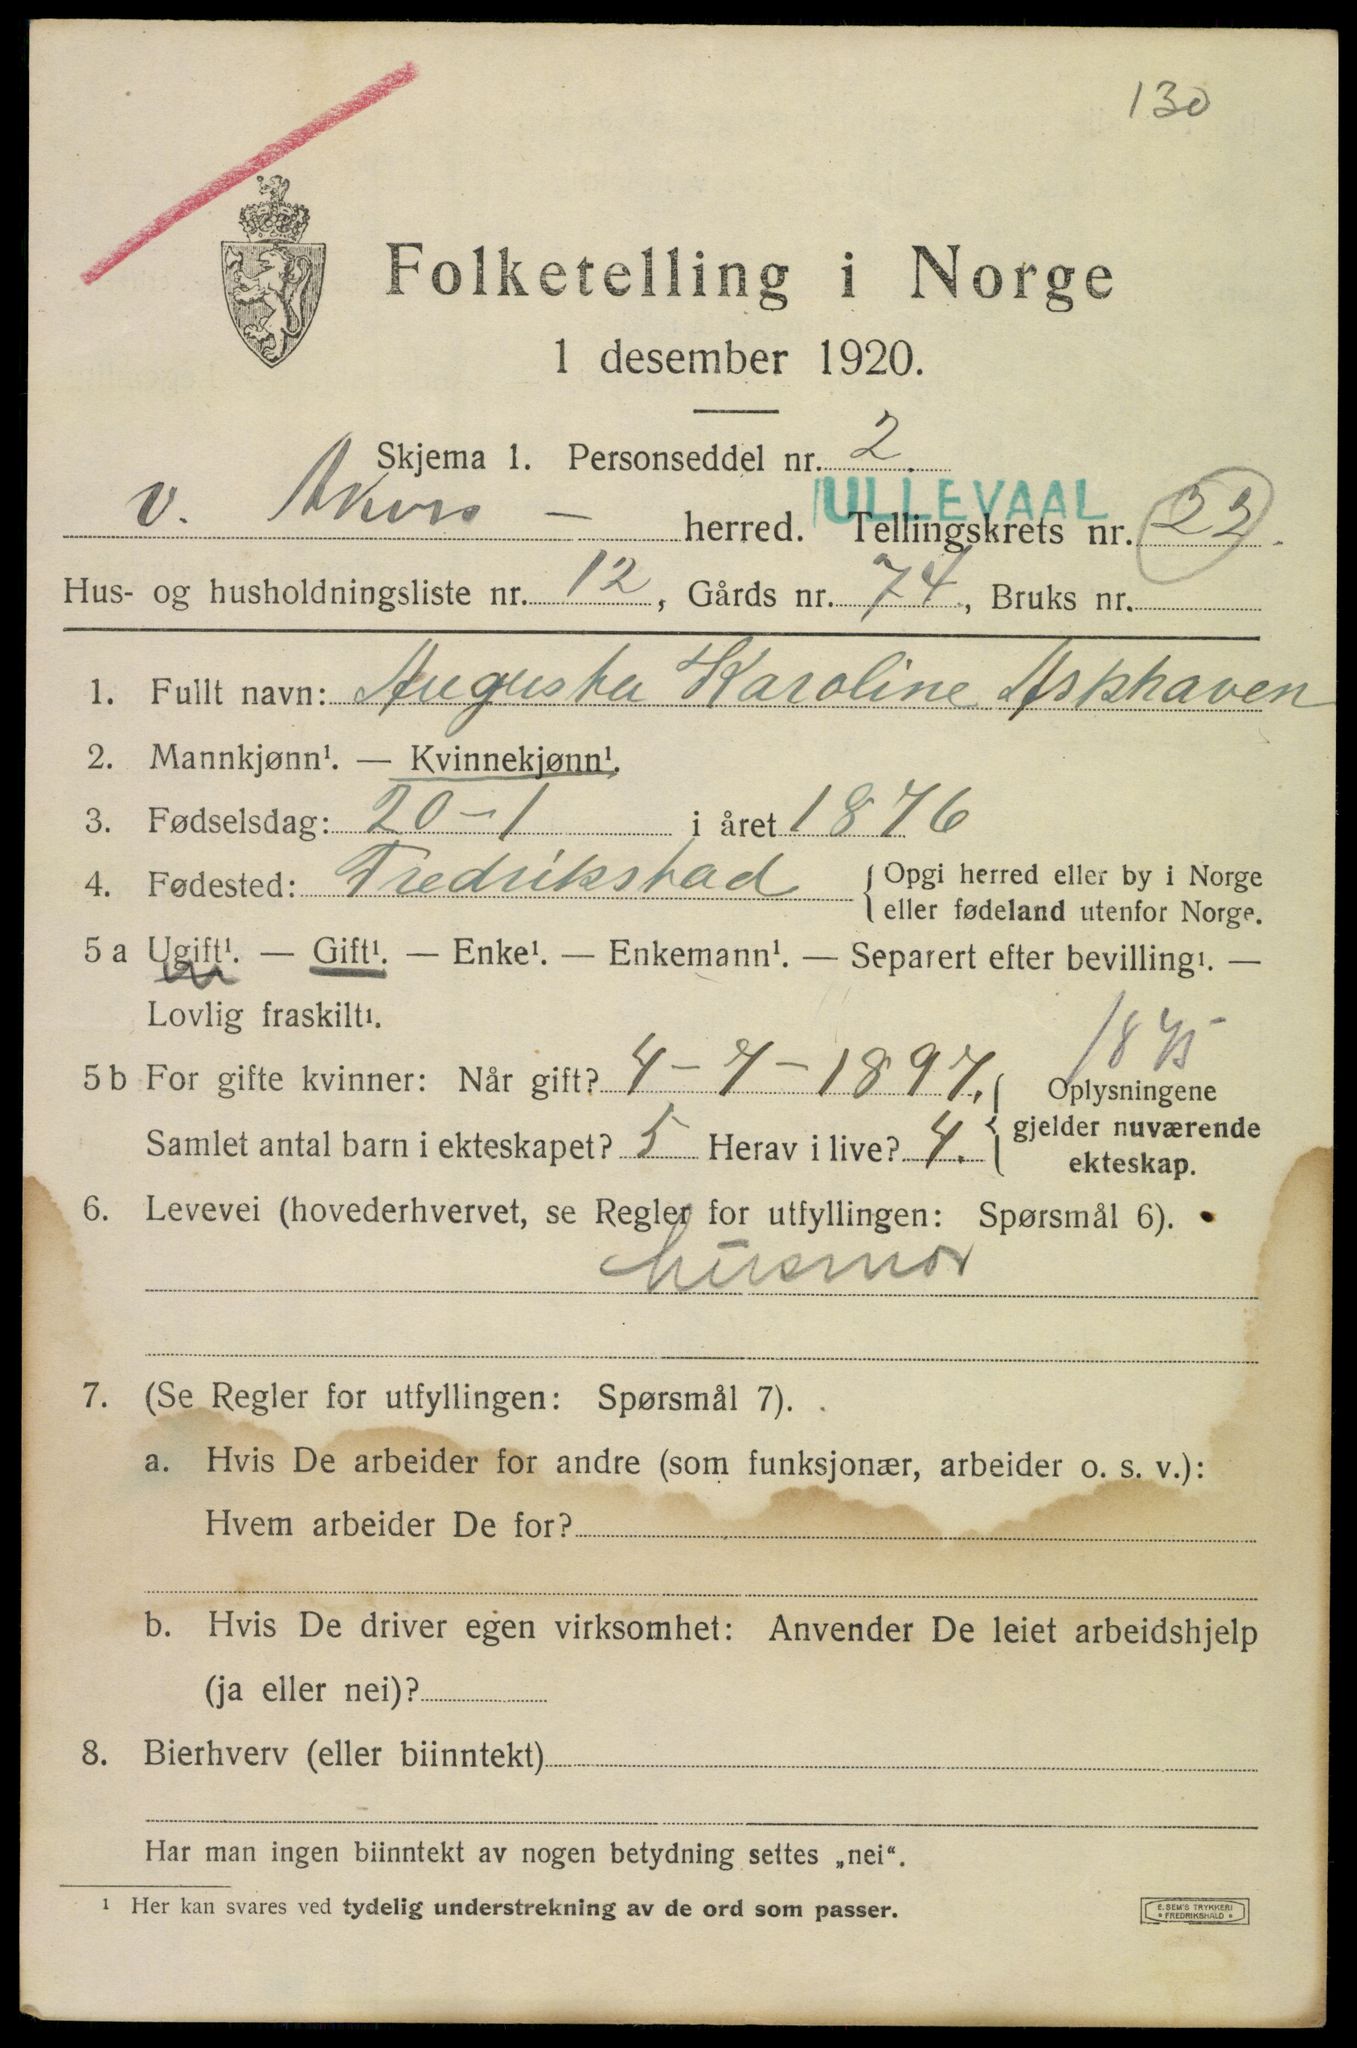 130
Folketelling i Norge
1 desember 1920.
Skjema 1. Personseddel nr. 2.
ULLEVAAL
v. Akers — herred. Tellingskrets nr. 22.
Hus- og husholdningsliste nr. 12, Gårds nr. 74, Bruks nr.
1. Fullt navn: Augusta Karoline Askhaven
2. Mannkjønn¹. — Kvinnekjønn¹.
3. Fødselsdag: 20-1 i året 1876
4. Fødested: Fredrikstad { Opgi herred eller by i Norge
eller fødeland utenfor Norge.
5 a Ugift¹. — Gift¹. — Enke¹. — Enkemann¹. — Separert efter bevilling¹. —
Lovlig fraskilt¹.
1875
5 b For gifte kvinner: Når gift? 4-7-1897. { Oplysningene
gjelder nuværende
Samlet antal barn i ekteskapet? 5 Herav i live? 4. ekteskap.
6. Levevei (hovederhvervet, se Regler for utfyllingen: Spørsmål 6).
husmor
7. (Se Regler for utfyllingen: Spørsmål 7).
a. Hvis De arbeider for andre (som funksjonær, arbeider o. s. v.):
Hvem arbeider De for?
b. Hvis De driver egen virksomhet: Anvender De leiet arbeidshjelp
(ja eller nei)?
8. Bierhverv (eller biinntekt)
Har man ingen biinntekt av nogen betydning settes „nei“.
¹ Her kan svares ved tydelig understrekning av de ord som passer.
E. SEM'S TRYKKERI
* FREDRIKSHALD *